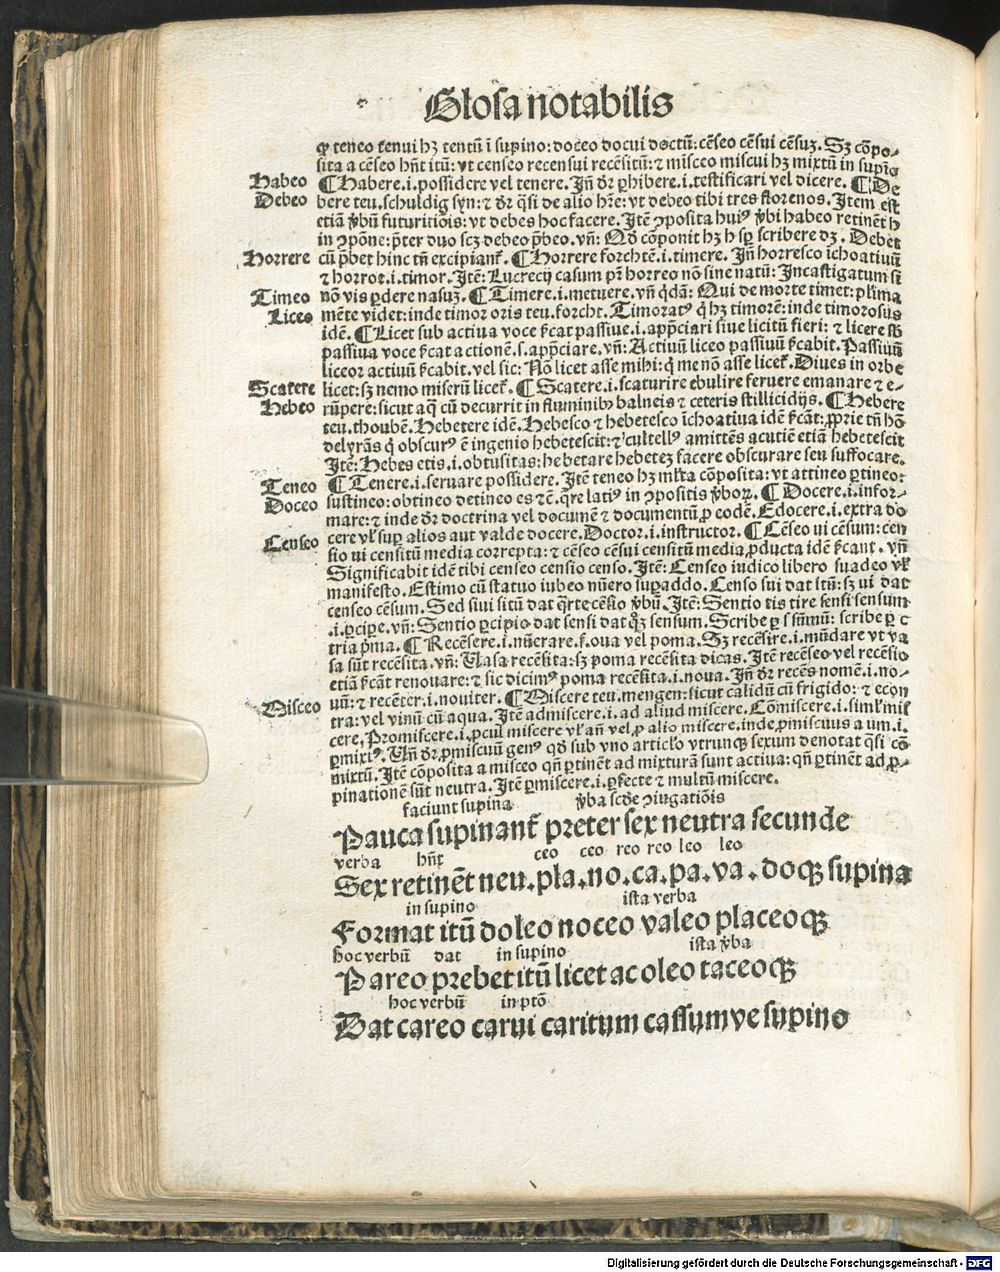 Glosa notabilis
ꝙ teneo tenui hꝫ tentū ī supino: doceo docui doctū: cēseo cēsui cēsuꝫ. Sꝫ cōpo-
sita a cēseo hn̄t itū: vt censeo recensui recēsitū: ⁊ misceo miscui hꝫ mixtū in supīo
Habeo
¶ Habere .i. possidere vel tenere. Jn̄ dr̄ ꝓhibere .i. testificari vel dicere. ¶ De
Debeo
bere teu. schuldig syn: ⁊ dr̄ q̄si de alio hr̄e: vt debeo tibi tres florenos. Jtem est
etiā v̄bū futuritiōis: vt debes hoc facere. Jtē ꝯposita huiꝰ v̄bi habeo retinēt h
in ꝯpōne: p̄ter duo scꝫ debeo p̄beo. vn̄: Qd̄ cōponit hꝫ h sꝑ scribere dꝫ. Debet
Horrere
cū p̄bet hinc tn̄ excipianť. ¶ Horrere forchtē .i. timere. Jn̄ horresco īchoatiuū
⁊ horror .i. timor. Jtē: Lucrecij casum pr̄ horreo nō sine natū: Incastigatum si
Timeo
nō vis ꝑdere nasuꝫ. ¶ Timere .i. metuere. vn̄ qd̄ā: Qui de morte timet: pl'ima
Liceo
mēte videt: inde timor oris teu. forcht. Timoratꝰ q̄ hꝫ timorē: inde timorosus
idē. ¶ Licet sub actiua voce s̄cat passiue .i. app̄ciari siue licitū fieri: ⁊ licere sb̄
passiua voce s̄cat actionē .s. app̄ciare. vn̄: Actiuū liceo passiuū s̄cabit. Passiuū
liceor actiuū s̄cabit. vel sic: Nō licet asse mihi: q̄ me nō asse liceť. Diues in orbe
Scatere
licet: sꝫ nemo miserū liceť. ¶ Scatere .i. scaturire ebulire feruere emanare ⁊ e-
Hebeo
rūpere: sicut aq̄ cū decurrit in fluminibꝰ balneis ⁊ ceteris stillicidijs. ¶ Hebere
teu. thoubē. Hebetere idē. Hebesco ⁊ hebetesco īchoatiua idē s̄cāt: ꝓprie tn̄ hō
delyrās q̄ obscurꝰ ē ingenio hebetescit: ⁊ cultellꝰ amittēs acutiē etiā hebetescit
Jtē: Hebes etis .i. obtusitas: hebetare hebeteꝫ facere obscurare seu suffocare.
Teneo
¶ Tenere .i. seruare possidere. Jtē teneo hꝫ ml'ta cōposita: vt attineo ꝑtineo:
Doceo
sustineo: obtineo detineo es ⁊ē. q̄re latiꝰ in ꝯpositis v̄boꝝ. ¶ Docere .i. infor-
mare: ⁊ inde dr̄ doctrina vel documē ⁊ documentū ꝓ eodē. Edocere .i. extra do
Censeo
cere vl' suꝑ alios aut valde docere. Doctor .i. instructor. ¶ Cēseo ui cēsum: cen
sio ui censitū media correpta: ⁊ cēseo cēsui censitū media ꝓducta idē s̄cant. vn̄
Significabit idē tibi censeo censio censo. Jtē: Censeo iudico libero suadeo vl'
manifesto. Estimo cū statuo iubeo nūero suꝑaddo. Censo sui dat stū: sꝫ ui dat
censeo cēsum. Sed siui situ̅ dat q̄rte cēsio v̄bū. Jtē: Sentio tis tire sensi sensum
.i. ꝑcipe. vn̄: Sentio ꝑcipio dat sensi dat qꝫ sensum. Scribe ꝑ s sūmū: scribe ꝑ c
tria p̄ma. ¶ Recēsere .i. nūerare. s̄. oua vel poma. Sꝫ recēsire .i. mūdare vt va
sa sūt recēsita. vn̄: Uasa recēsita: sꝫ poma recēsita dicas. Jtē recēseo vel recēsio
etiā s̄cāt renouare: ⁊ sic dicimꝰ poma recēsita .i. noua. Jn̄ dr̄ recēs nomē .i. no-
uū: ⁊ recēter .i. nouiter. ¶ Miscere teu. mengen: sicut calidū cū frigido: ⁊ econ
Misceo
tra: vel vinū cū aqua. Jtē admiscere .i. ad aliud miscere. Cōmiscere .i. siml' mis
cere, Promiscere .i. ꝓcul miscere vl' an̄ vel ꝓ alio miscere. inde ꝓmiscuus a um .i.
ꝑmixtꝰ. Un̄ dr̄ ꝓmiscuū genꝰ qd̄ sub vno articl'o vtrunqꝫ sexum denotat q̄si cō
mixtū. Jtē cōposita a misceo qn̄ ꝑtinēt ad mixturā sunt actiua: qn̄ ꝑtinēt ad ꝓ-
pinationē sūt neutra. Jtē ꝑmiscere .i. ꝑfecte ⁊ multū miscere.
faciunt supina v̄ba scd̄e ꝯiugatiōis
Pauca supinanť preter sex neutra secunde
verba hn̄t ceo ceo reo reo leo leo
Sex retinēt neu. pla. no. ca. pa. va. doqꝫ supina
in supino ista verba
Format itū doleo noceo valeo placeoqꝫ
hoc verbū dat in supino ista v̄ba
Pareo prebet itū licet ac oleo taceoqꝫ
hoc verbū in ptō
Dat careo carui caritum cassumve supino
Digitalisierung gefördert durch die Deutsche Forschungsgemeinschaft - DFG